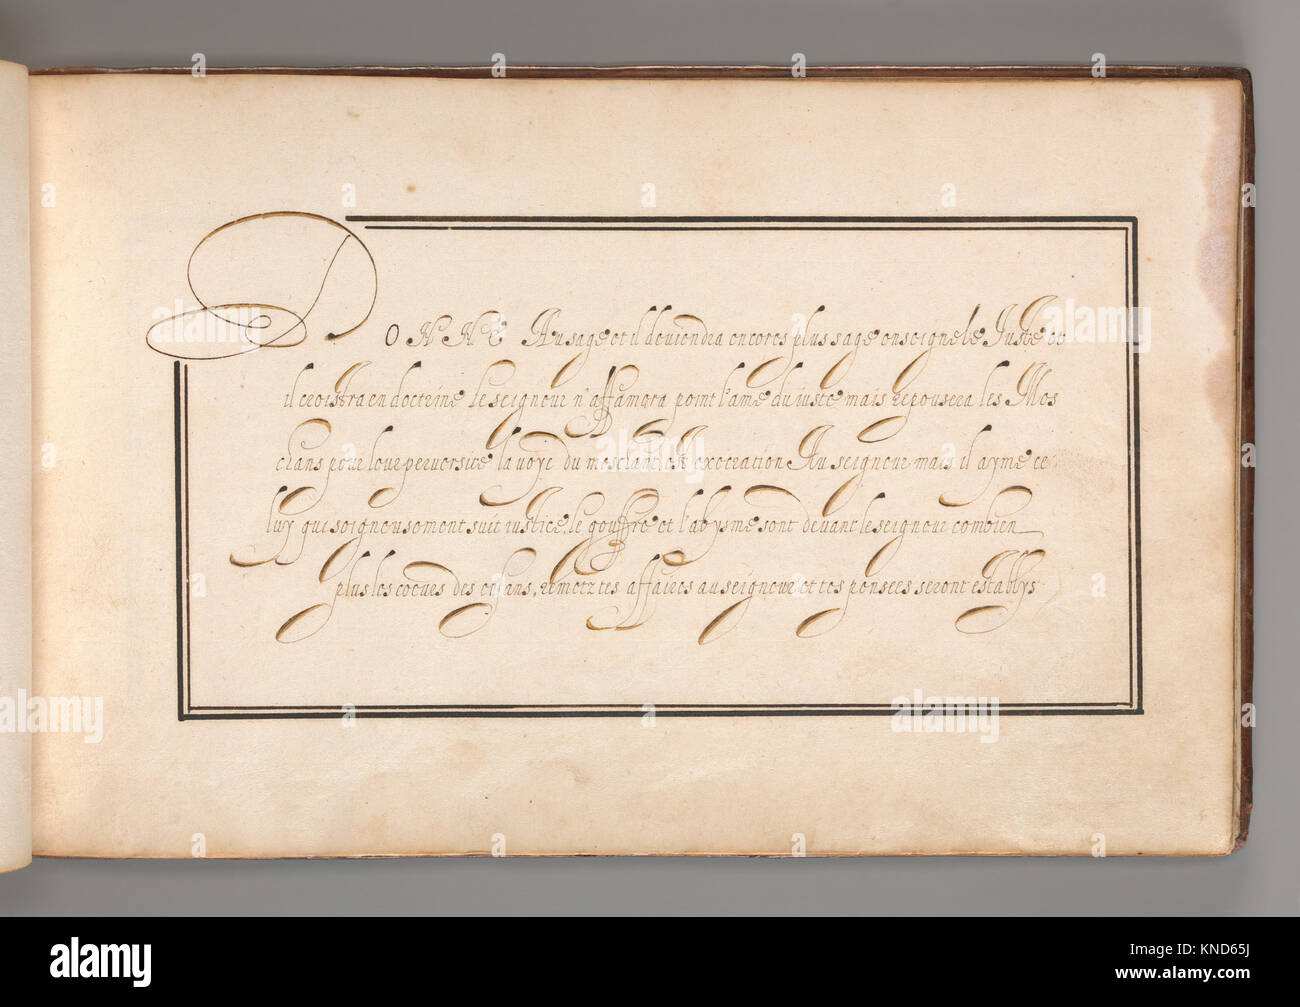 DONNE Au sage et il deviendra encores plus sage enseigne le Juste et
il croistra en doctrine le seigneur n'affamera point l'ame du iuste mais repousera les Mes
chans pour leur perversite la voye du meschant est execration Au seigneur mais il ayme ce
luy qui soigneusement suit iustice, le gouffre et l'abysme sont devant le seigneur combien
plus les coeurs des ehans, remetz tes affaires au seigneur et tes pensees seront establys
alamy
Image ID: KND65J
www.alamy.com